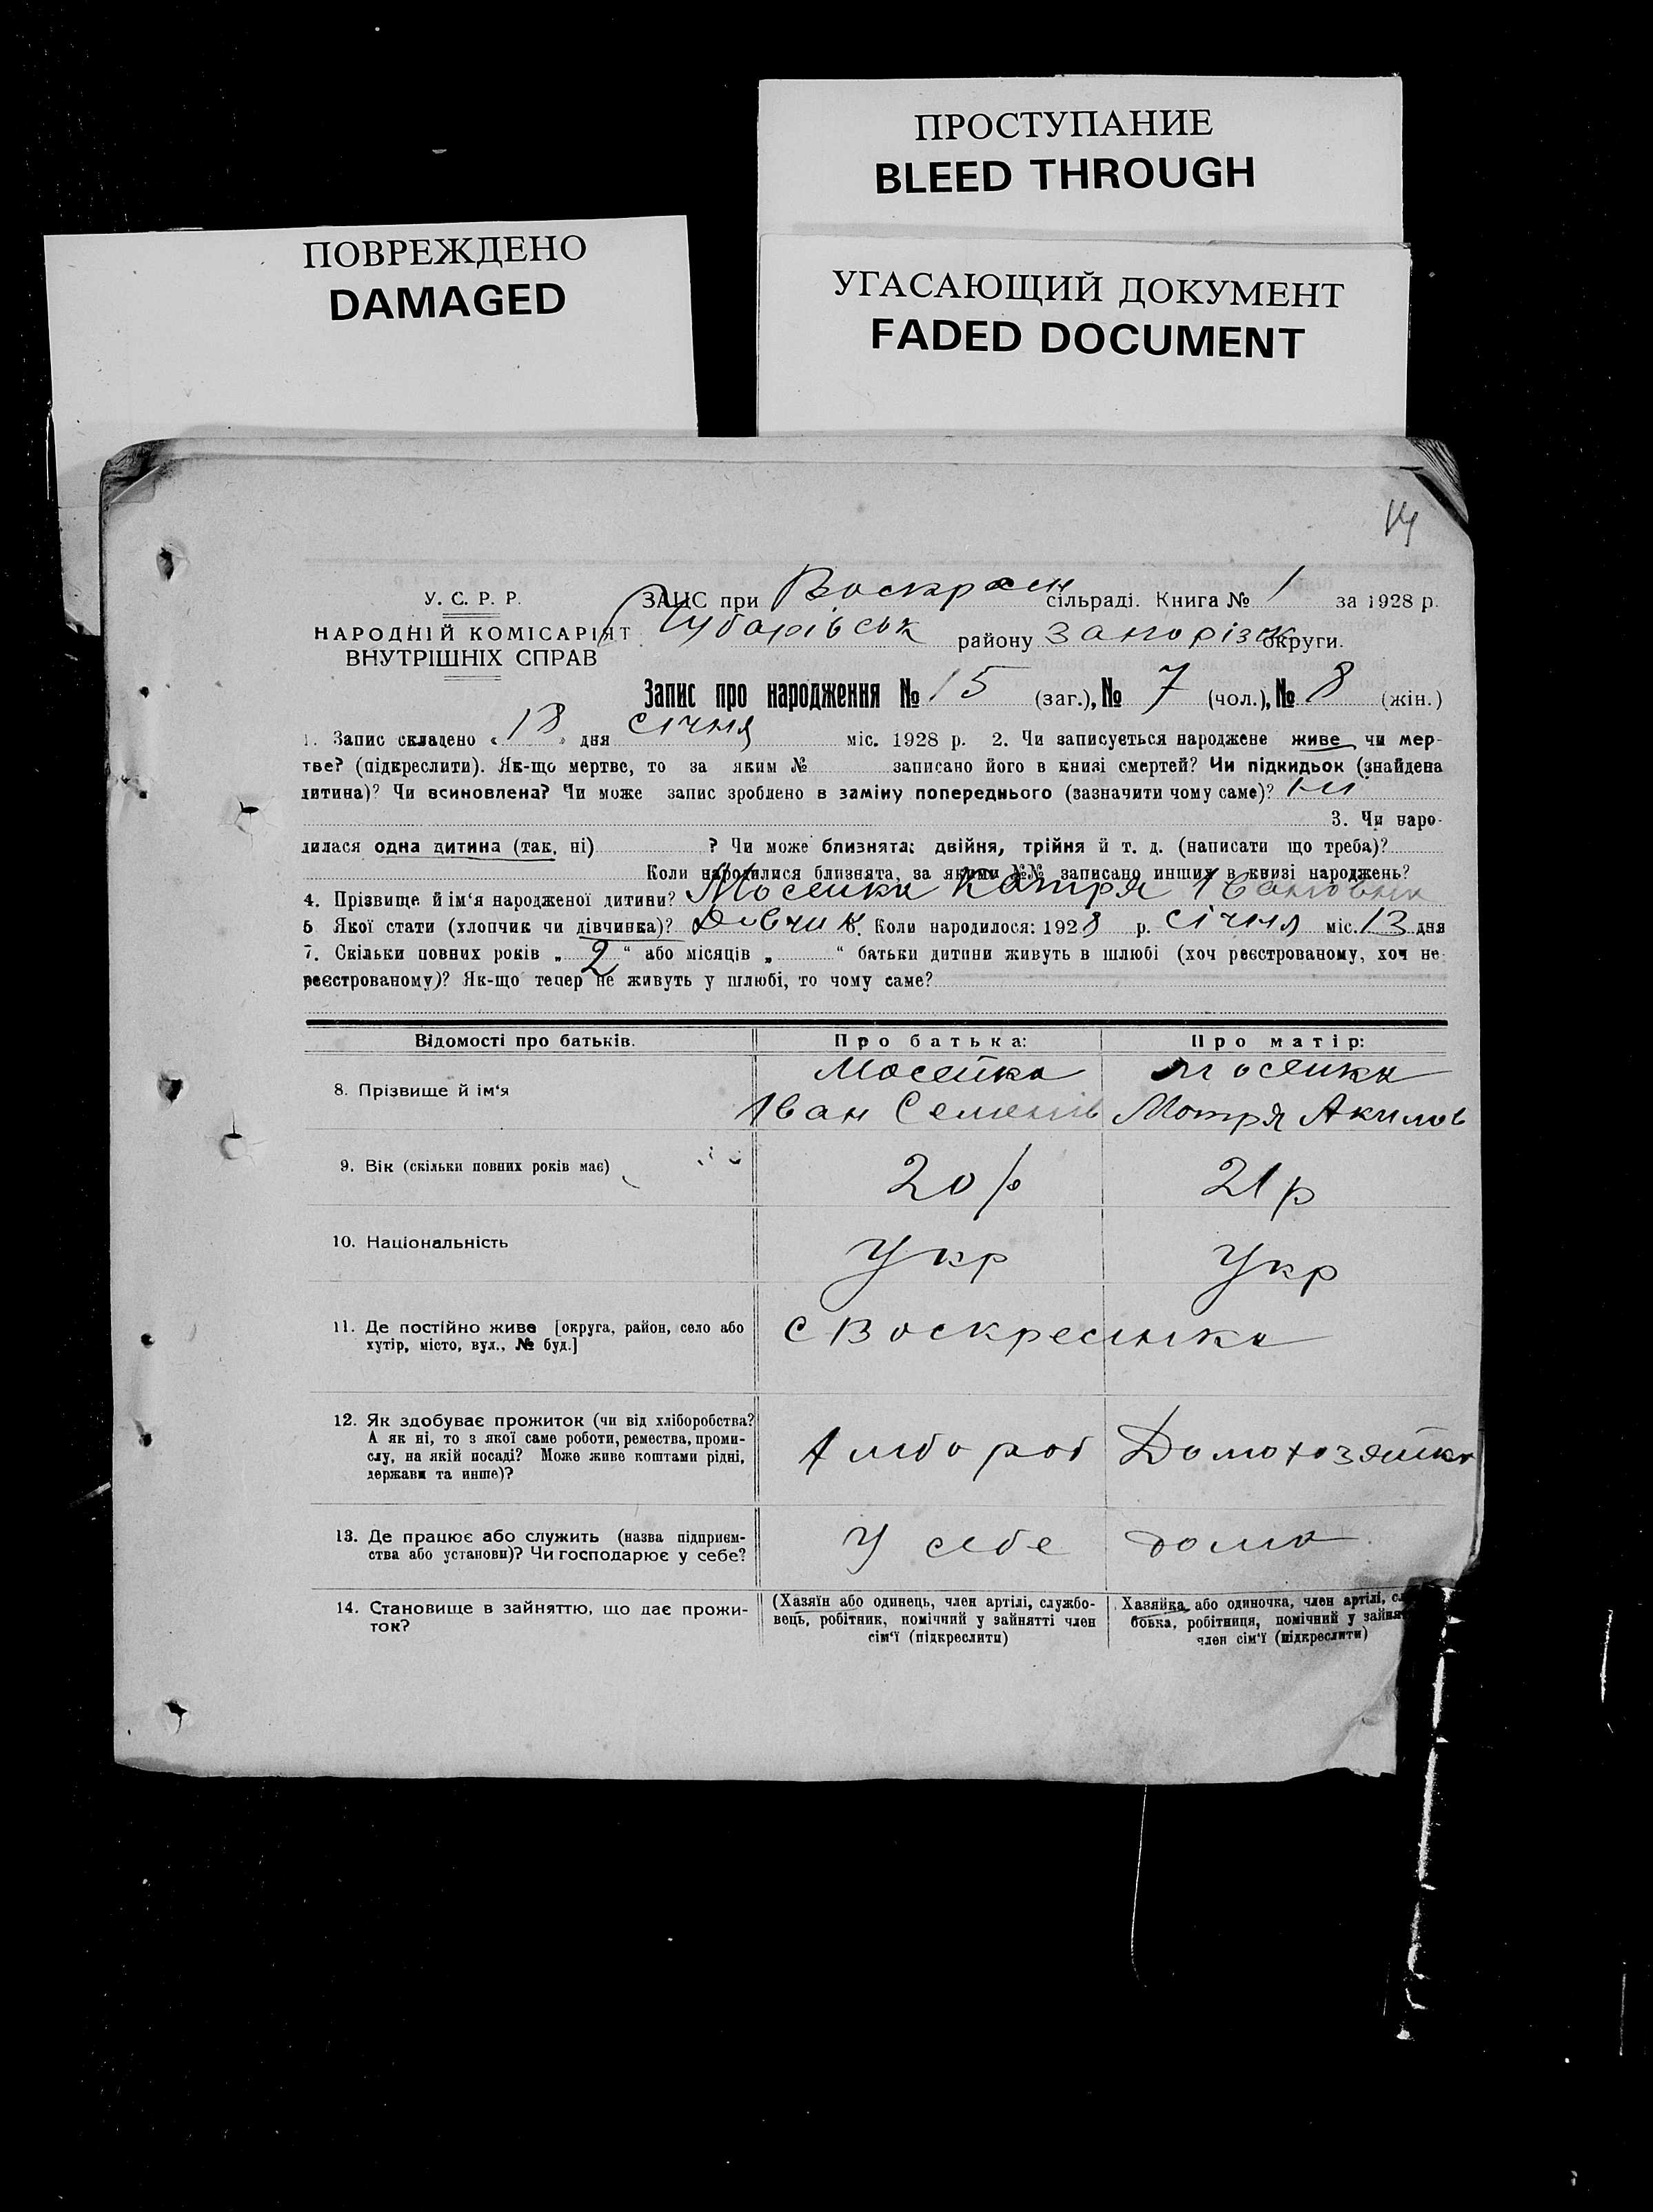 ПРОСТУПАНИЕ
BLEED THROUGH
ПОВРЕЖДЕНО
DAMAGED
УГАСАЮЩИЙ ДОКУМЕНТ
FADED DOCUMENT
14
У. С. Р. Р.
НАРОДНІЙ КОМІСАРІЯТ
ВНУТРІШНІХ СПРАВ
ЗАГС при Воскресен сільраді. Книга № 1 за 1928 р.
Чубарівськ району Запорізок округи.
Запис про народження № 15 (заг.), № 7 (чол.), № 8 (жін.)
1. Запис складено « 18 » дня січня міс. 1928 р. 2. Чи записується народжене живе чи мер-
тве? (підкреслити). Як-що мертве, то за яким № записано його в книзі смертей? Чи підкидьок (знайдена
дитина)? Чи всиновлена? Чи може запис зроблено в заміну попереднього (зазначити чому саме)?
3. Чи наро-
дилася одна дитина (так, ні) ? Чи може близнята: двійня, трійня й т. д. (написати що треба)?
Коли народилися близнята, за якими №№ записано инших в книзі народжень?
4. Прізвище й ім'я народженої дитини? Мосейка Катря Івановна
5 Якої стати (хлопчик чи дівчинка)? 6. Коли народилося: 1928 р. січня міс. 13 дня
7. Скільки повних років „ 2 “ або місяців „ “ батьки дитини живуть в шлюбі (хоч реєстрованому, хоч не-
реєстрованому)? Як-що тепер не живуть у шлюбі, то чому саме?
Відомості про батьків. Про батька: Про матір:
8. Прізвище й ім'я
Мосейка Мосейка
Іван Семенів Мотря Акилов
9. Вік (скільки повних років має) 20 р 21 р
10. Національність Укр Укр
11. Де постійно живе [округа, район, село або
хутір, місто, вул., № буд.]
с Воскресенка
12. Як здобуває прожиток (чи від хліборобства?
А як ні, то з якої саме роботи, ремества, проми-
слу, на якій посаді? Може живе коштами рідні,
держави та инше)?
Домохозяйка
13. Де працює або служить (назва підприєм-
ства або установи)? Чи господарює у себе?
У себе дома
14. Становище в зайняттю, що дає прожи-
ток?
(Хазяїн або одинець, член артілі, службо-
вець, робітник, помічний у зайнятті член
сім'ї (підкреслити)
Хазяйка або одиночка, член артілі,
бовка, робітниця, помічний у
член сім'ї (підкреслити)